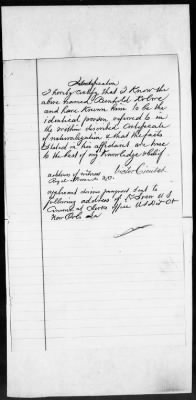 Identification
I hereby certify that I Know the
above named Reinhold
and have Known him to be the
identical person referred to in
the within described Certificate
of naturalization & that the facts
stated in his affidavit are true
to the best of my Knowledge & belief
address of witness
applicant desires passport sent to
following address
Office U S Dist Ct
New Orls La